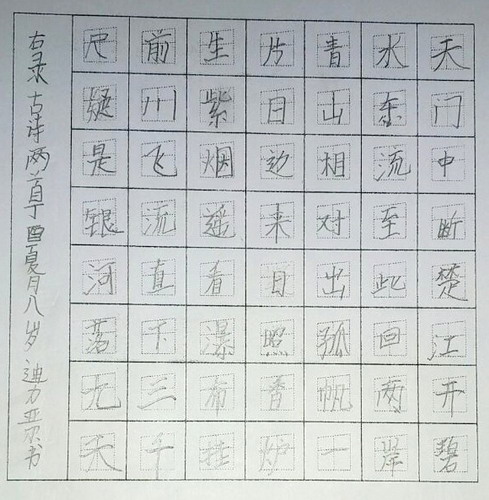 天门中断楚江开碧
水东流至此回两岸
青山相对出孤帆一
片日边来日照香炉
生紫烟遥看瀑布挂
前川飞流直下三千
尺疑是银河落九天
右录古诗两首丁酉夏月八岁迪力亚尔书